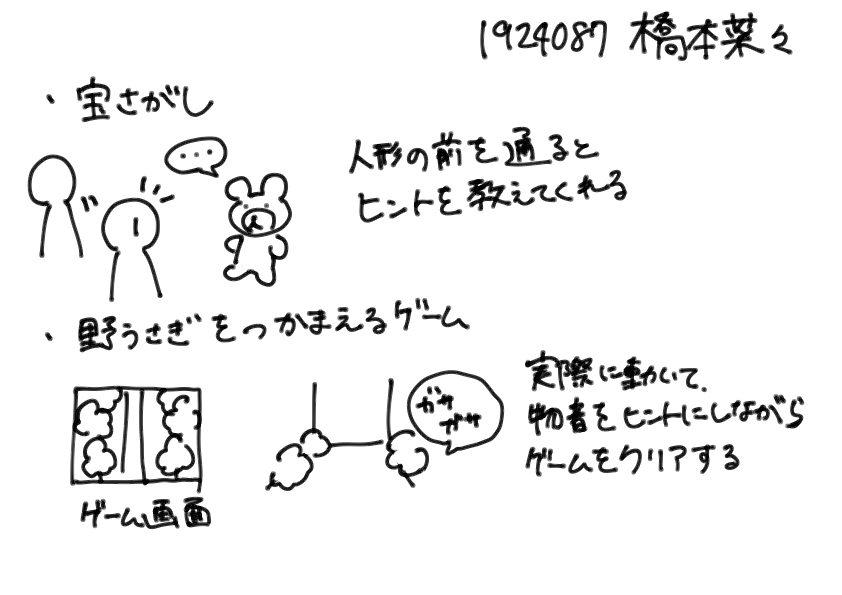 1924087 橋本菜々
・宝さがし
・・・
人形の前を通ると
ヒントを教えてくれる
・野うさぎをつかまえるゲーム
ガサ
ガサ
実際に動いて、
物者をヒントにしながら
ゲームをクリアする
ゲーム画面